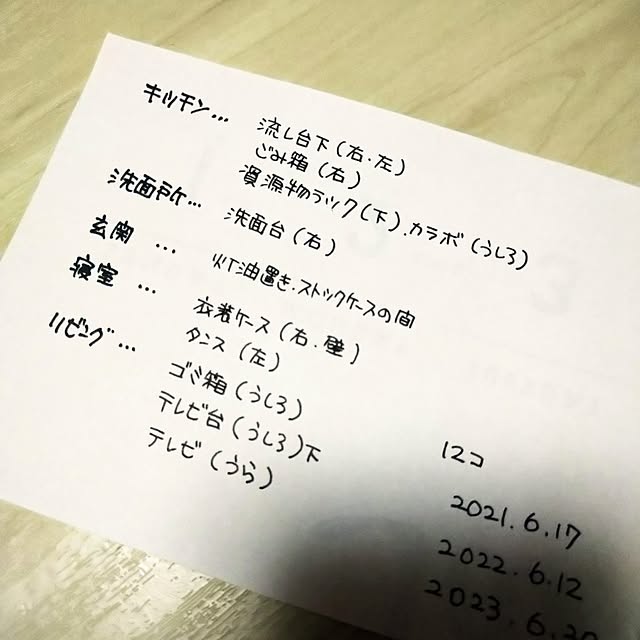 キッチン… 流し台下(右.左)
ごみ箱(右)
資源物ラック(下).カラボ(うしろ)
洗面所… 洗面台(右)
玄関 … 灯油置き.ストックケースの間
寝室 … 衣装ケース(右.壁)
タンス(左)
リビング… ゴミ箱(うしろ)
テレビ台(うしろ)下
テレビ(うら)
12コ
2021.6.17
2022.6.12
2023.6.